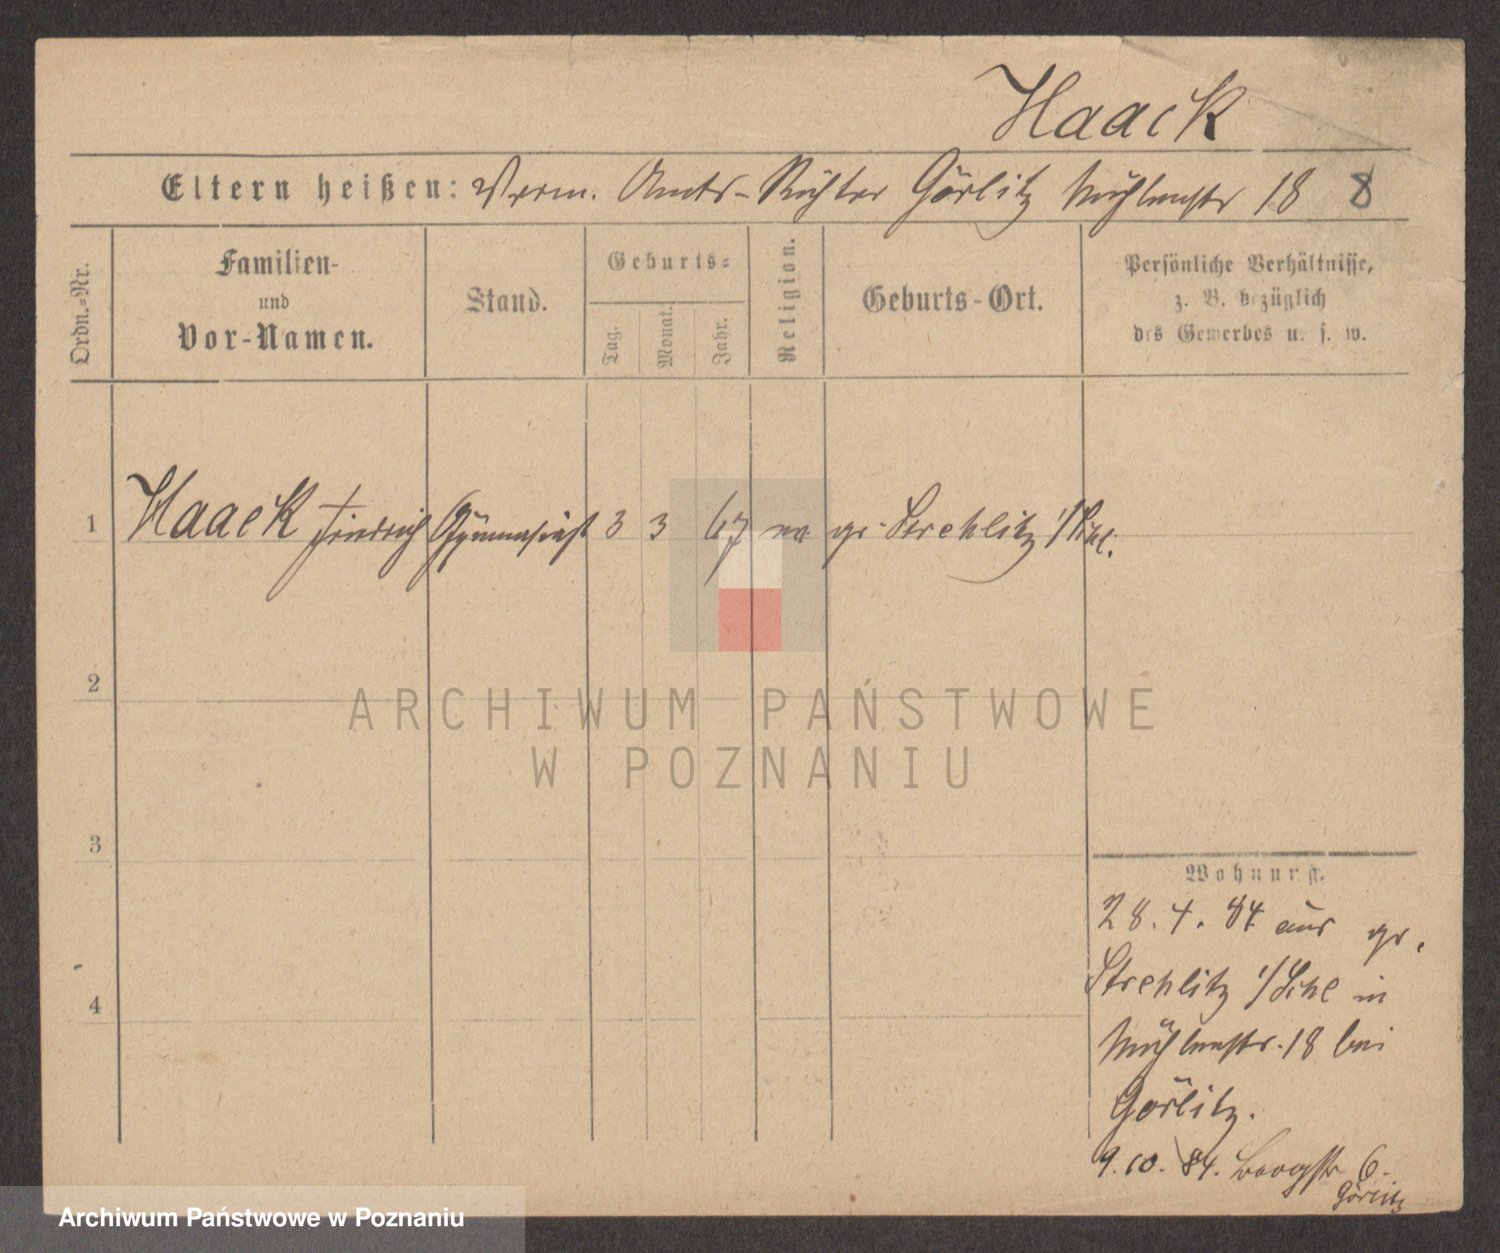 Haack
Eltern heißen: Verm. Amts-Richter Görlitz Mühlenstr 18 8
Ordn.-Nr.
Familien-
und
Vor-Namen.
Stand.
Geburts-
Tag.
Monat.
Jahr.
Religion.
Geburts-Ort.
Persönliche Verhältnisse,
z. B. bezüglich
des Gewerbes u. s. w.
1 Haack Friedrich Gymnasiast 3 3 67 gr Strehlitz
2
ARCHIWUM PAŃSTWOWE
W POZNANIU
3
Wohnung.
28. 4. 84 aus gr.
Strehlitz in
4
Mühlenstr. 18 bei
Görlitz.
9. 10. 84. 6.
Görlitz
Archiwum Państwowe w Poznaniu